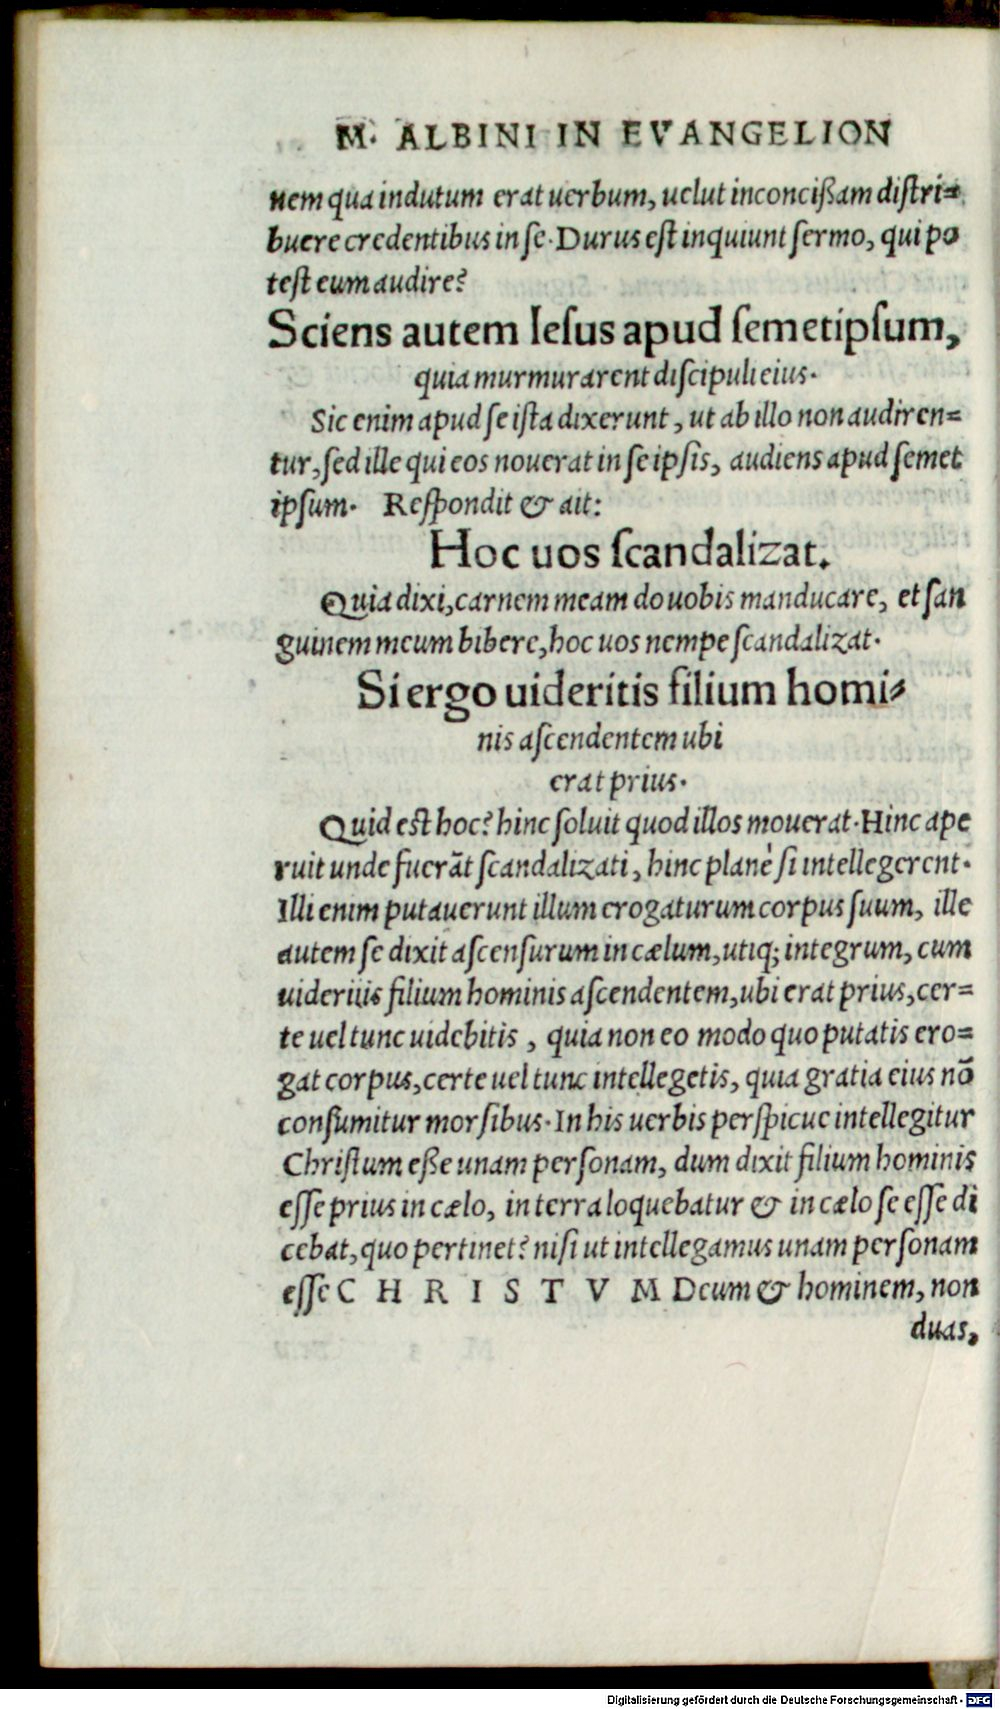 M. ALBINI IN EVANGELION
nem qua indutum erat uerbum, uelut inconcißam distri=
buere credentibus in se. Durus est inquiunt sermo, qui po
test eum audire?
Sciens autem Iesus apud semetipsum,
quia murmurarent discipuli eius.
Sic enim apud se ista dixerunt, ut ab illo non audiren=
tur, sed ille qui eos nouerat in se ipsis, audiens apud semet
ipsum. Respondit & ait:
Hoc uos scandalizat.
Quia dixi, carnem meam do uobis manducare, et san
guinem meum bibere, hoc uos nempe scandalizat.
Si ergo uideritis filium homi=
nis ascendentem ubi
erat prius.
Quid est hoc? hinc soluit quod illos mouerat. Hinc ape
ruit unde fuerãt scandalizati, hinc planè si intellegerent.
Illi enim putauerunt illum erogaturum corpus suum, ille
autem se dixit ascensurum in cælum, utiq; integrum, cum
uideritis filium hominis ascendentem, ubi erat prius, cer=
te uel tunc uidebitis, quia non eo modo quo putatis ero=
gat corpus, certe uel tunc intellegetis, quia gratia eius nõ
consumitur morsibus. In his uerbis perspicue intellegitur
Christum eße unam personam, dum dixit filium hominis
esse prius in cælo, in terra loquebatur & in cælo se esse di
cebat, quo pertinet? nisi ut intellegamus unam personam
esse C H R I S T V M Deum & hominem, non
duas,
Digitalisierung gefördert durch die Deutsche Forschungsgemeinschaft - DFG